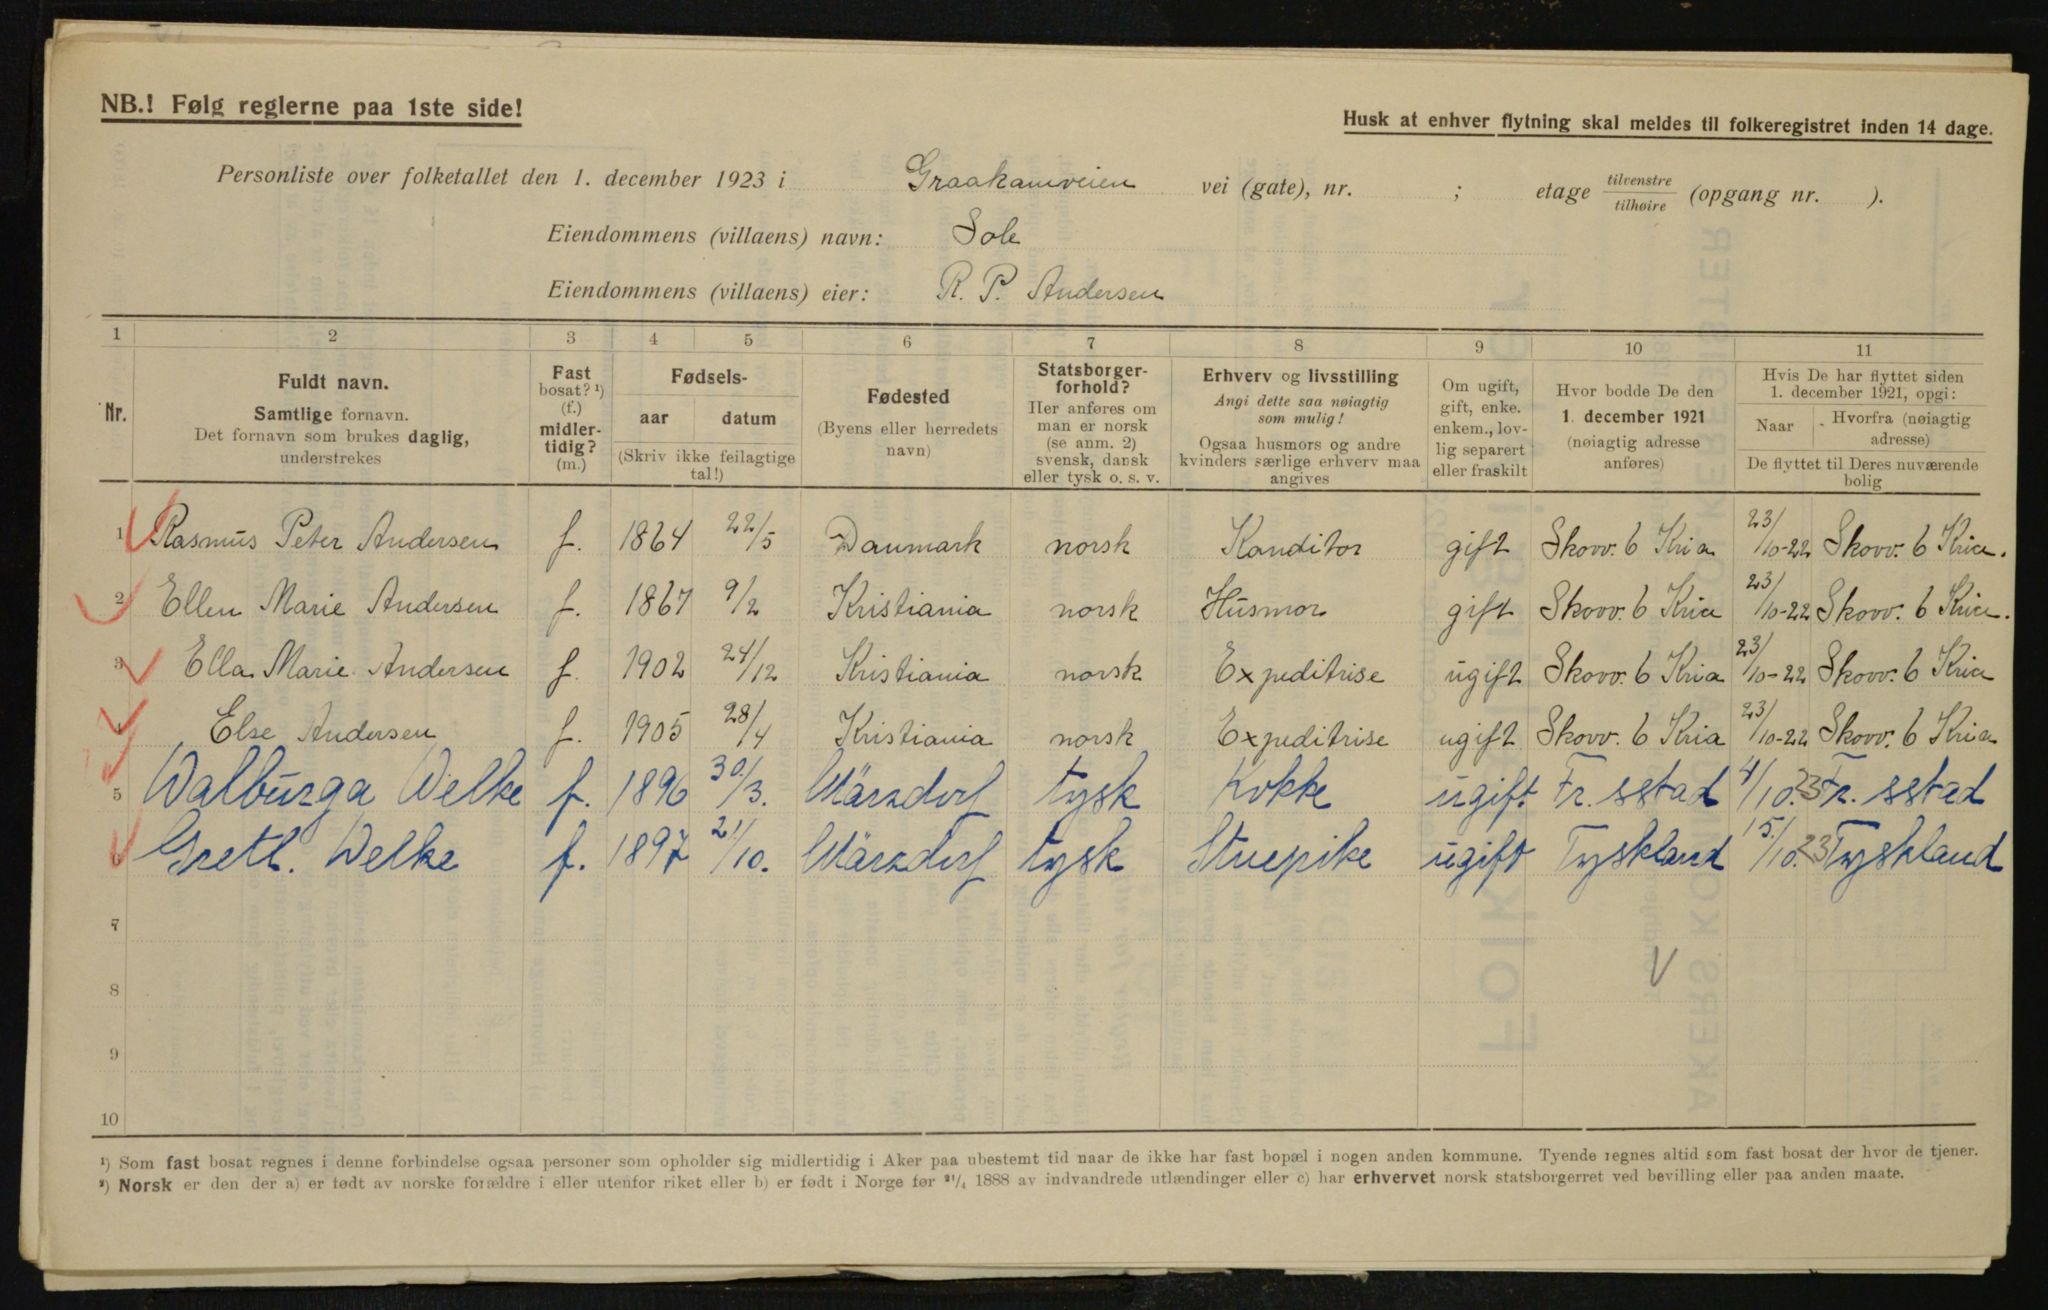 NB.! Følg reglerne paa 1ste side!
Husk at enhver flytning skal meldes til folkeregistret inden 14 dage.
Personliste over folketallet den 1. december 1923 i Graakamveien vei (gate), nr. ; etage tilvenstre/tilhøire (opgang nr. ).
Eiendommens (villaens) navn: Sole
Eiendommens (villaens) eier: R. P. Andersen
1 2 3 4 5 6 7 8 9 10 11
Nr.
Fuldt navn.
Samtlige fornavn.
Det fornavn som brukes daglig,
understrekes
Fast
bosat? ¹)
(f.)
midler-
tidig?
(m.)
Fødsels-
aar datum
(Skriv ikke feilagtige
tal!)
Fødested
(Byens eller herredets
navn)
Statsborger-
forhold?
Her anføres om
man er norsk
(se anm. 2)
svensk, dansk
eller tysk o. s. v.
Erhverv og livsstilling
Angi dette saa nøiagtig
som mulig!
Ogsaa husmors og andre
kvinders særlige erhverv maa
angives
Om ugift,
gift, enke.
enkem., lov-
lig separert
eller fraskilt
Hvor bodde De den
1. december 1921
(nøiagtig adresse
anføres)
Hvis De har flyttet siden
1. december 1921, opgi:
Naar
Hvorfra (nøiagtig
adresse)
De flyttet til Deres nuværende
bolig
1 Rasmus Peter Andersen f. 1864 22/5 Danmark norsk Konditor gift Skovv. 6 Kria 23/10-22 Skovv. 6 Kria.
2 Ellen Marie Andersen f. 1867 9/2 Kristiania norsk Husmor gift Skovv. 6 Kria 23/10-22 Skovv. 6 Kria.
3 Ella Marie Andersen f. 1902 24/12 Kristiania norsk Expeditrise ugift Skovv. 6 Kria 23/10-22 Skovv. 6 Kria
4 Else Andersen f. 1905 28/4 Kristiania norsk Expeditrise ugift Skovv. 6 Kria 23/10-22 Skovv. 6 Kria
5 Walburga Welke f. 1896 30/3. Märzdorf tysk Kokke ugift Fr. sstad 4/10.23 Fr. sstad
6 Gretl. Welke f. 1897 21/10. Märzdorf tysk Stuepike ugift Tyskland 15/10.23 Tyskland
7
8
9
10
¹) Som fast bosat regnes i denne forbindelse ogsaa personer som opholder sig midlertidig i Aker paa ubestemt tid naar de ikke har fast bopæl i nogen anden kommune. Tyende regnes altid som fast bosat der hvor de tjener.
²) Norsk er den der a) er født av norske forældre i eller utenfor riket eller b) er født i Norge før ²¹/₄ 1888 av indvandrede utlændinger eller c) har erhvervet norsk statsborgerret ved bevilling eller paa anden maate.